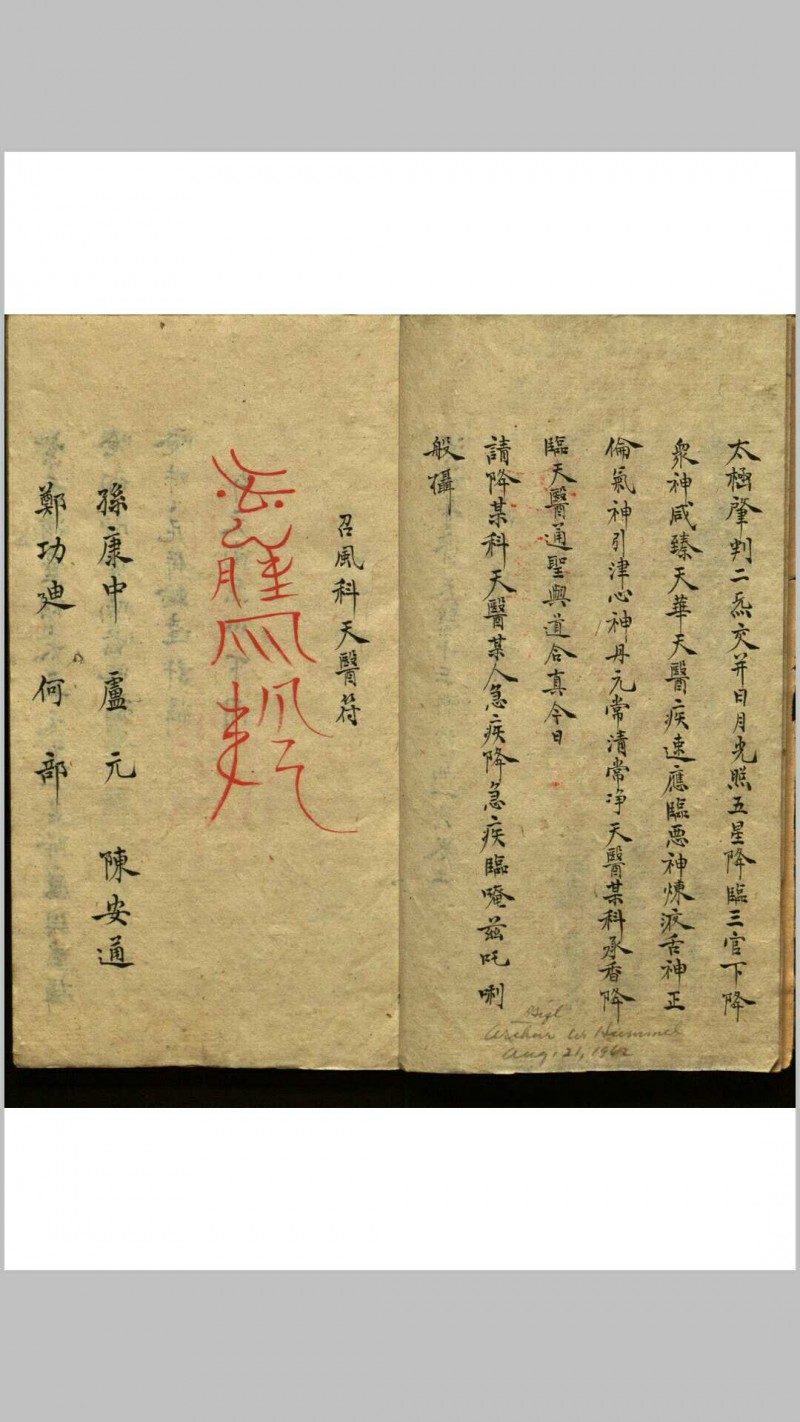 太極肇判二炁交并日月光照五星降臨三官下降
衆神咸臻天華天醫疾速應臨惡神煉液舌神正
倫氣神引津心神丹元常清常净天醫某科承香降
臨天醫通聖與道合真今日
請降某科天醫某人急疾降急疾臨唵茲吒唎
般攝
Gift
Arthur W. Hummel
Aug. 21, 1962
召風科天醫符
孫康中 盧元 陳安通
鄭功廸 何部